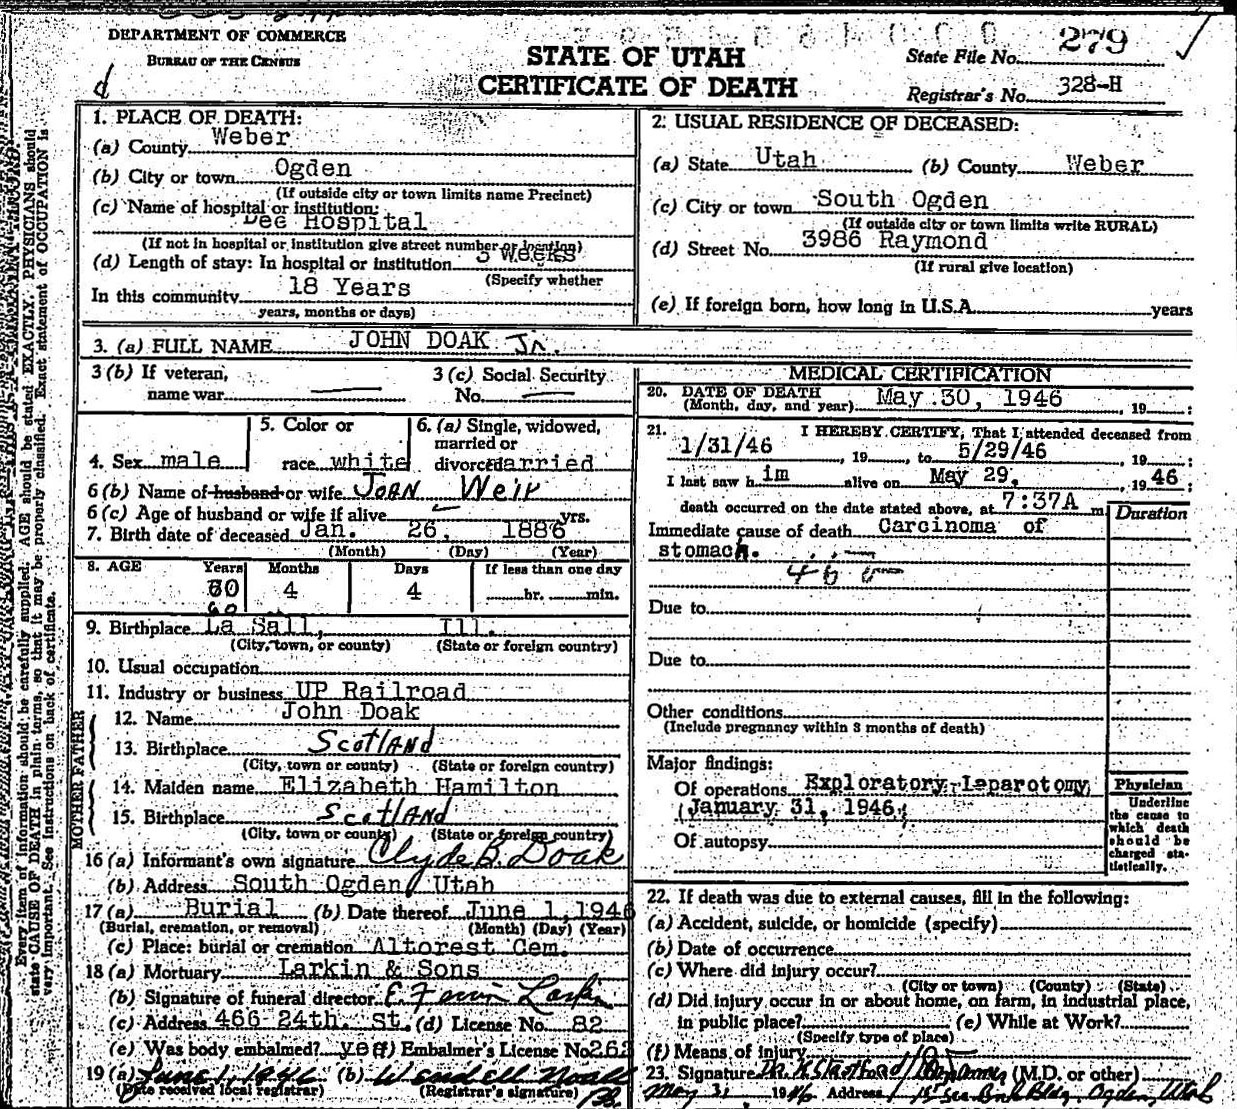 DEPARTMENT OF COMMERCE
BUREAU OF THE CENSUS
STATE OF UTAH
CERTIFICATE OF DEATH
State File No. 279
Registrar's No. 328-H
d
Every item of information should be carefully supplied. AGE should be stated EXACTLY. PHYSICIANS should
state CAUSE OF DEATH in plain terms, so that it may be properly classified. Exact statement of OCCUPATION is
very important. See instructions on back of certificate.
1. PLACE OF DEATH:
(a) County Weber
(b) City or town Ogden
(If outside city or town limits name Precinct)
(c) Name of hospital or institution:
Dee Hospital
(If not in hospital or institution give street number or location)
(d) Length of stay: In hospital or institution 3 Weeks
(Specify whether
In this community 18 Years
years, months or days)
2. USUAL RESIDENCE OF DECEASED:
(a) State Utah (b) County Weber
(c) City or town South Ogden
(If outside city or town limits write RURAL)
(d) Street No. 3986 Raymond
(If rural give location)
(e) If foreign born, how long in U.S.A. years
3. (a) FULL NAME JOHN DOAK Jr.
3 (b) If veteran,
name war
3 (c) Social Security
No.
4. Sex male
5. Color or
race white
6. (a) Single, widowed,
married or
divorced married
6 (b) Name of husband or wife JOAN Weir
6 (c) Age of husband or wife if alive yrs.
7. Birth date of deceased Jan. 26, 1886
(Month) (Day) (Year)
8. AGE Years Months Days If less than one day
60 4 4 hr. min.
60
9. Birthplace La Sall, Ill.
(City, town, or county) (State or foreign country)
10. Usual occupation
11. Industry or business UP Railroad
FATHER
12. Name John Doak
13. Birthplace Scotland
(City, town or county) (State or foreign country)
MOTHER
14. Maiden name Elizabeth Hamilton
15. Birthplace Scotland
(City, town or county) (State or foreign country)
16 (a) Informant's own signature Clyde B. Doak
(b) Address South Ogden, Utah
17 (a) Burial (b) Date thereof June 1, 1946
(Burial, cremation, or removal) (Month) (Day) (Year)
(c) Place: burial or cremation Altorest Cem.
18 (a) Mortuary Larkin & Sons
(b) Signature of funeral director E. Larkin
(c) Address 466 24th. St. (d) License No. 82
(e) Was body embalmed? yes (f) Embalmer's License No 262
19 (a) June 1, 1946 (b) Wendell Noall
(Date received local registrar) (Registrar's signature)
MEDICAL CERTIFICATION
20. DATE OF DEATH
(Month, day, and year) May 30, 1946, 19 :
21. I HEREBY CERTIFY, That I attended deceased from
1/31/46, 19 , to 5/29/46, 19 :
I last saw him alive on May 29, 1946;
death occurred on the date stated above, at 7:37A m
Duration
Immediate cause of death Carcinoma of
stomach.
Due to
Due to
Other conditions
(Include pregnancy within 3 months of death)
Major findings:
Of operations Exploratory Laparotomy
(January 31, 1946)
Of autopsy
Physician
Underline
the cause to
which death
should be
charged sta-
tistically.
22. If death was due to external causes, fill in the following:
(a) Accident, suicide, or homicide (specify)
(b) Date of occurrence
(c) Where did injury occur?
(City or town) (County) (State)
(d) Did injury occur in or about home, on farm, in industrial place,
in public place? (e) While at Work?
(Specify type of place)
(f) Means of injury
23. Signature (M.D. or other)
May 31 1946 Address Bldg, Ogden, Utah